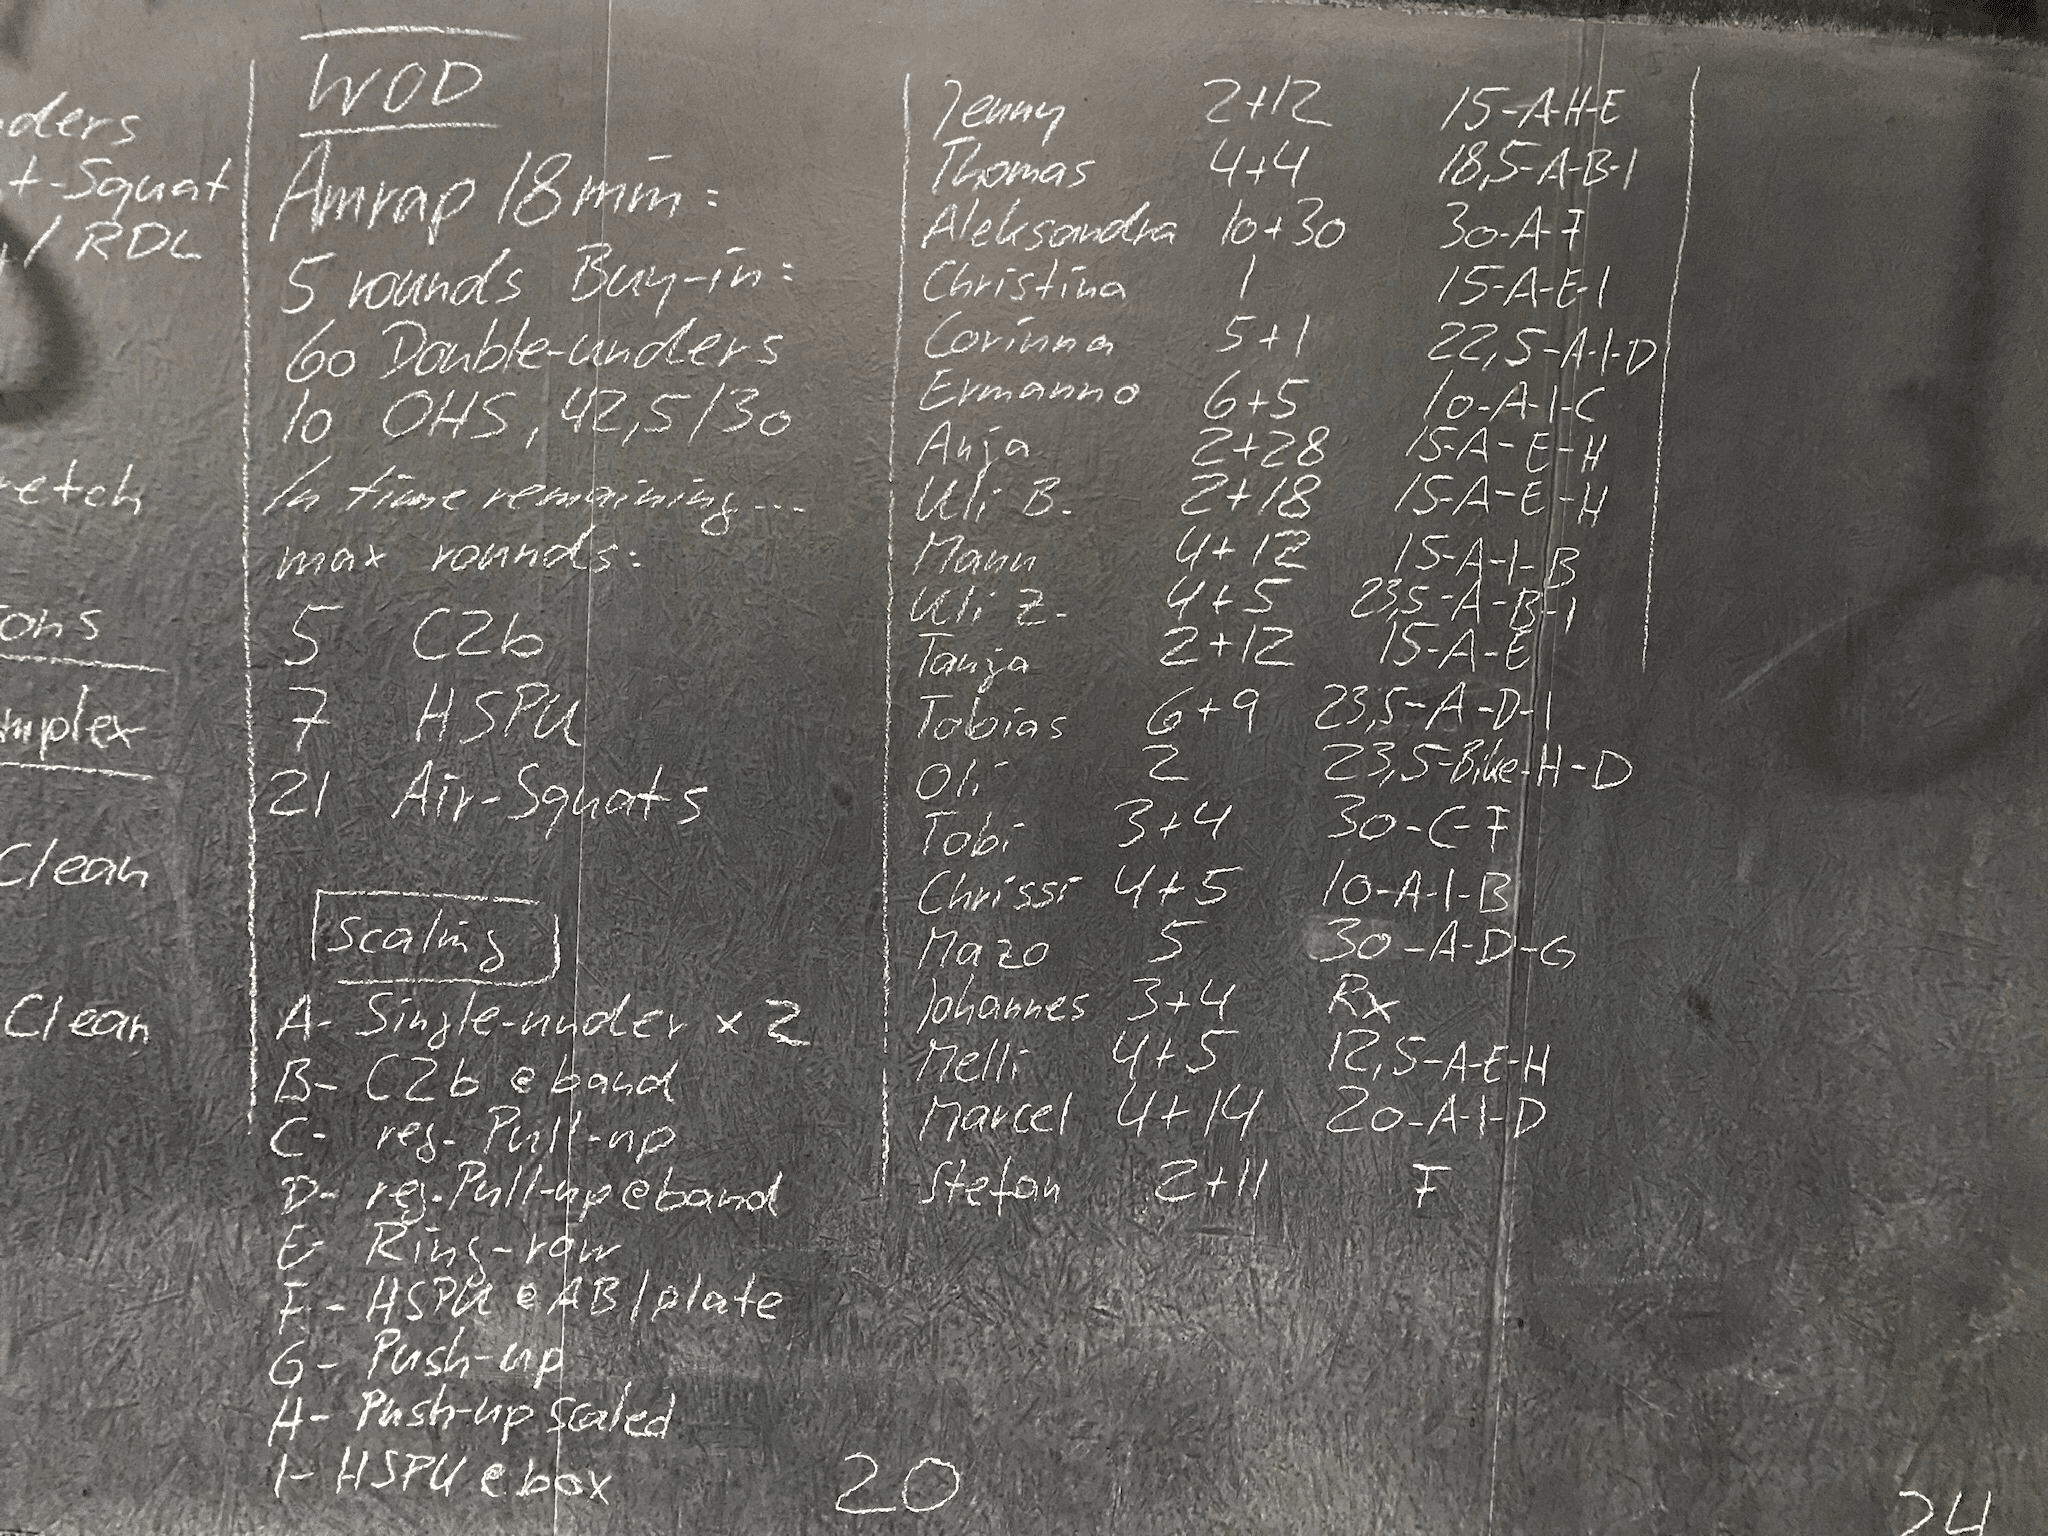 t-Squat
/ RDL
Clean
Clean
WOD
Amrap 18 min:
5 rounds Buy-in:
60 Double-unders
10 OHS, 42,5/30
In time remaining...
max rounds:
5 C2b
7 HSPU
21 Air-Squats
Scaling
A- Single-under x 2
B- C2b @ band
C- reg. Pull-up
D- reg. Pull-up @ band
E- Ring-row
F- HSPU @ AB/plate
G- Push-up
H- Push-up scaled
I- HSPU @ box
Jenny 2+12 15-A-H-E
Thomas 4+4 18,5-A-B-I
Aleksandra 10+30 30-A-F
Christina 1 15-A-E-I
Corinna 5+1 22,5-A-I-D
Ermanno 6+5 10-A-I-C
Anja 2+28 15-A-E-H
Uli B. 2+18 15-A-E-H
Manu 4+12 15-A-I-B
Uli Z. 4+5 23,5-A-B-I
Tanja 2+12 15-A-E
Tobias 6+9 23,5-A-D-I
Oli 2 23,5-Bike-H-D
Tobi 3+4 30-C-F
Chrissi 4+5 10-A-I-B
Mazo 5 30-A-D-G
Johannes 3+4 Rx
Melli 4+5 12,5-A-E-H
Marcel 4+14 20-A-I-D
Stefan 2+11 F
20
24